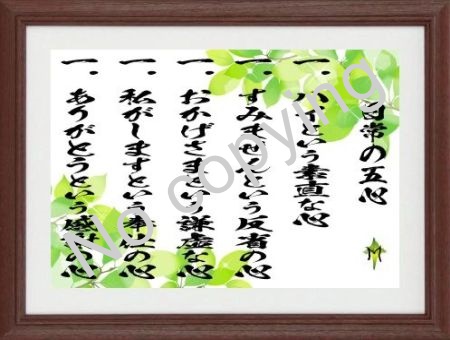 日常の五心
一．ハイという素直な心
一．すみませんという反省の心
一．おかげさまという謙虚な心
一．私がしますという奉仕の心
一．ありがとうという感謝の心
No copying
M